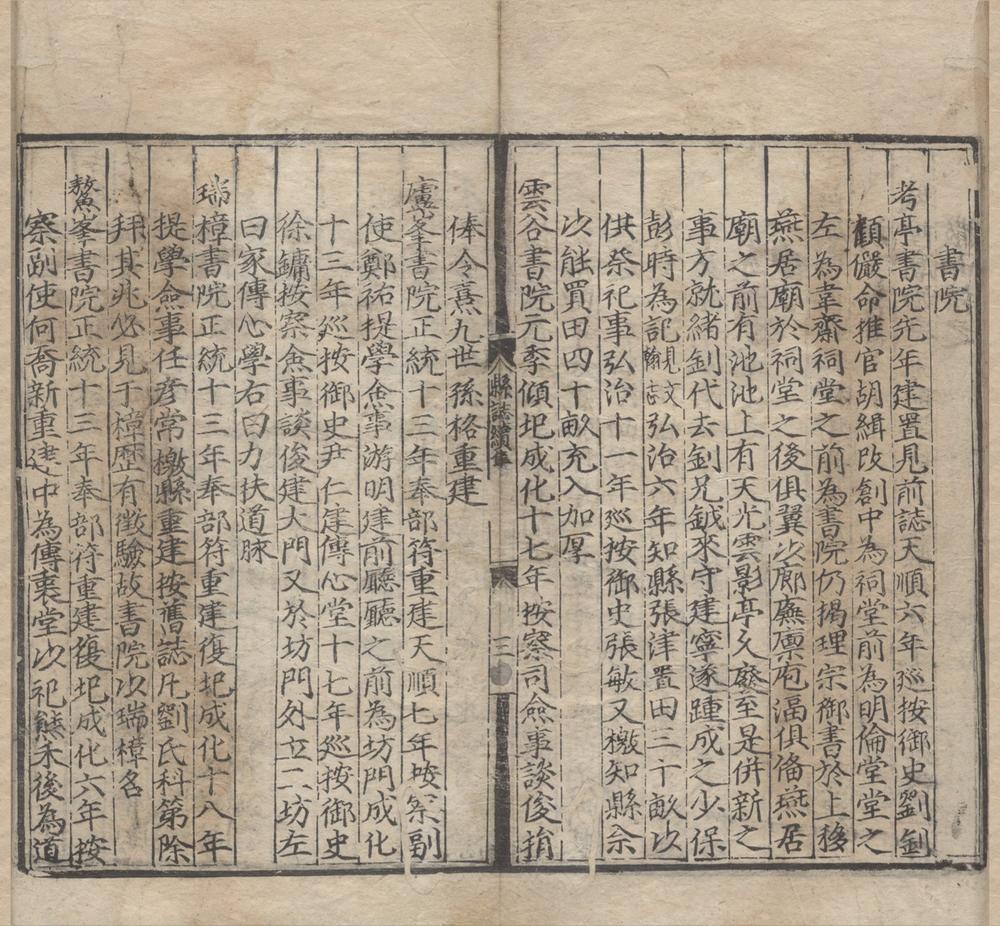 書院
考亭書院先年建置見前誌天順六年廵按御史劉釗
顧儼命推官胡緝改創中為祠堂前為明倫堂堂之
左為韋齋祠堂之前為書院仍揭理宗御書於上移
燕居廟於祠堂之後俱翼以廊廡廪庖湢俱俻燕居
廟之前有池池上有天光雲影亭久廢至是併新之
事方就緒釗代去釗兄鉞來守建寧遂踵成之少保
彭時為記見文翰志弘治六年知縣張津置田三十畝以
供祭祀事弘治十一年廵按御史張敏又檄知縣余
以能買田四十畝充入加厚
雲谷書院元季傾圯成化十七年按察司僉事談俊捐
縣誌續集
三
俸令熹九世孫格重建
廬峯書院正統十三年奉部符重建天順七年按察副
使鄭祐提學僉事游明建前廳廳之前為坊門成化
十三年廵按御史尹仁建傳心堂十七年廵按御史
徐鏞按察僉事談俊建大門又於坊門外立二坊左
曰家傳心學右曰力扶道脉
瑞樟書院正統十三年奉部符重建復圯成化十八年
提學僉事任彦常檄縣重建按舊誌凡劉氏科第除
拜其兆必見于樟歷有徵驗故書院以瑞樟名
鰲峯書院正統十三年奉部符重建復圯成化六年按
察副使何喬新重建中為傳裏堂以祀熊禾後為道